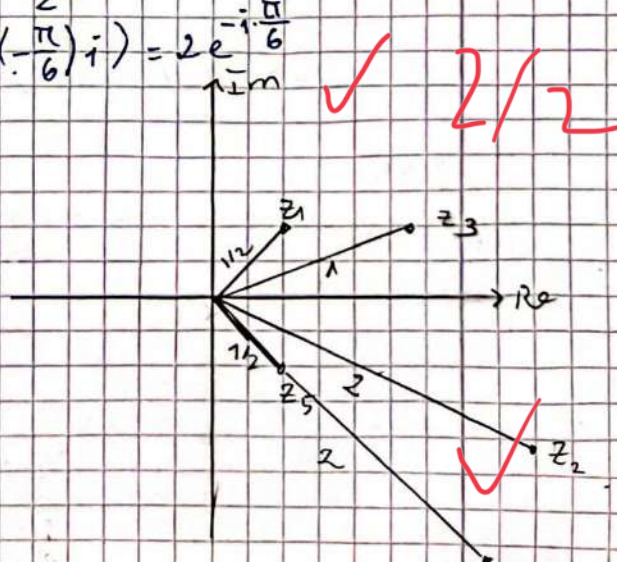 2
(-π/6) i ) = 2 e^{-i·π/6}
Im
2/2
z1
z3
1/2
1
Re
1/2
z5
2
2
z2